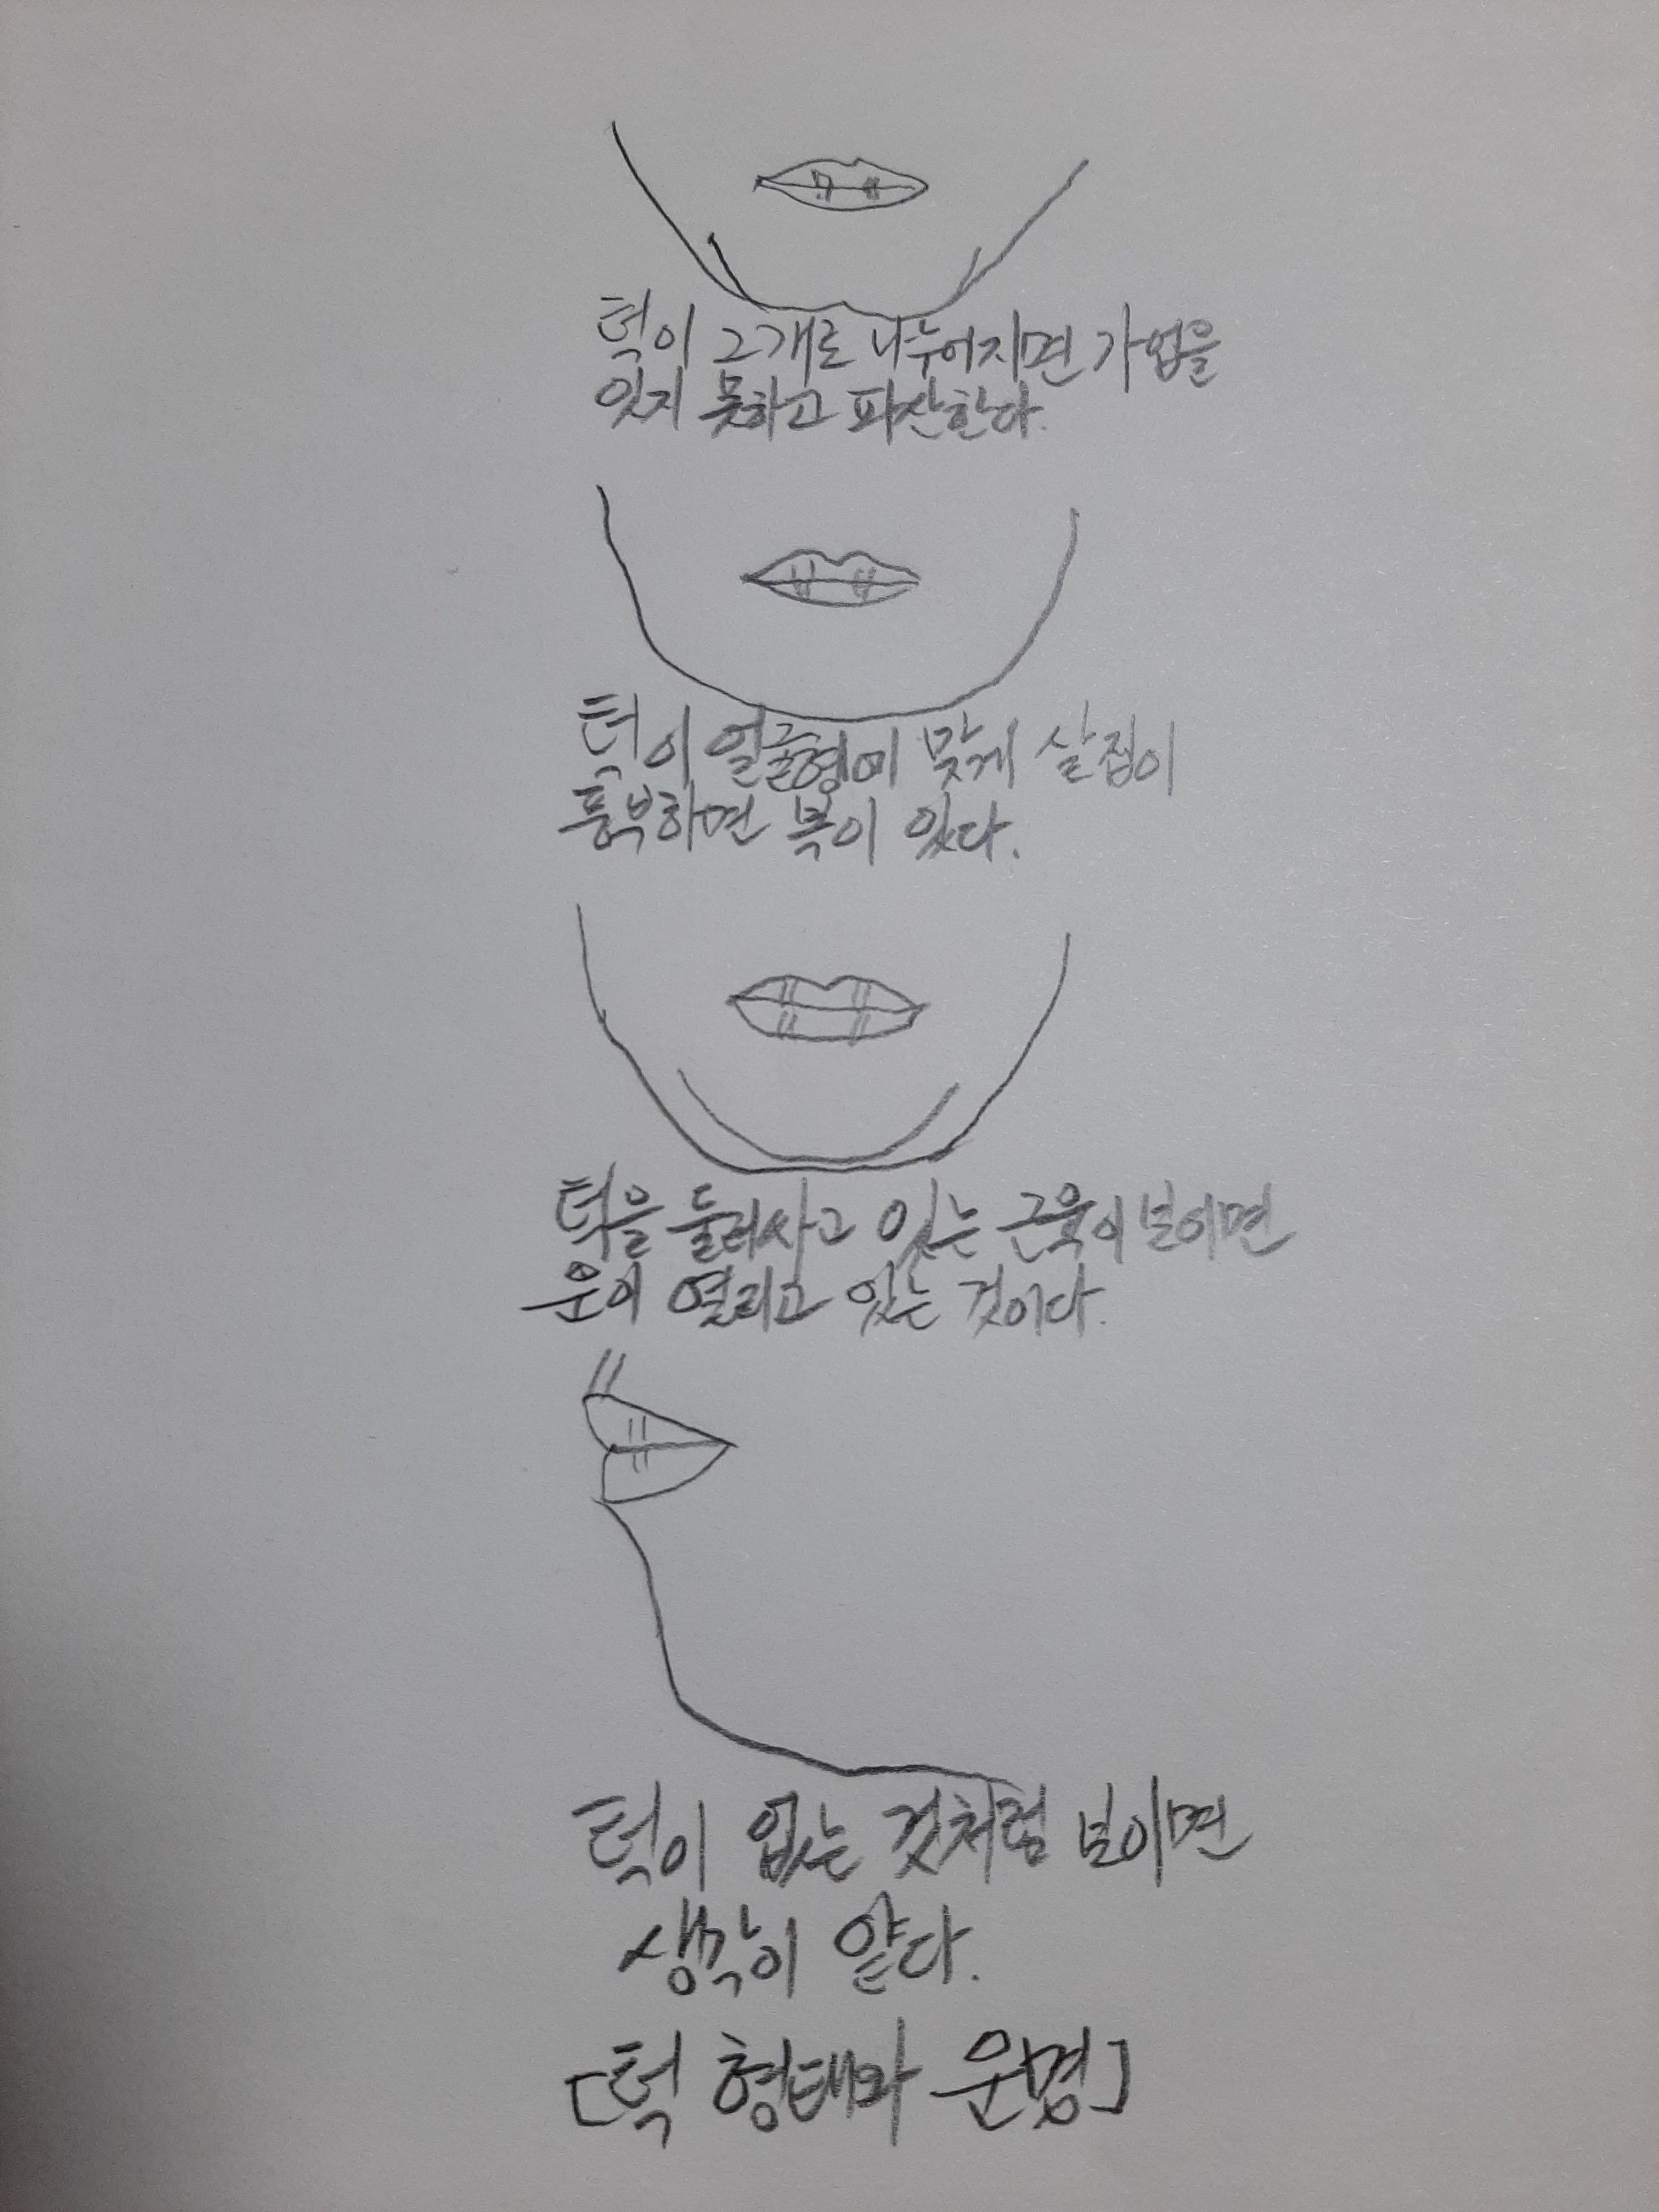 턱이 2개로 나누어지면 가업을
잇지 못하고 파산한다.
턱이 얼굴형에 맞게 살집이
풍부하면 복이 있다.
턱을 둘러싸고 있는 근육이 보이면
운이 열리고 있는 것이다.
턱이 없는 것처럼 보이면
생각이 얕다.
[턱 형태와 운명]